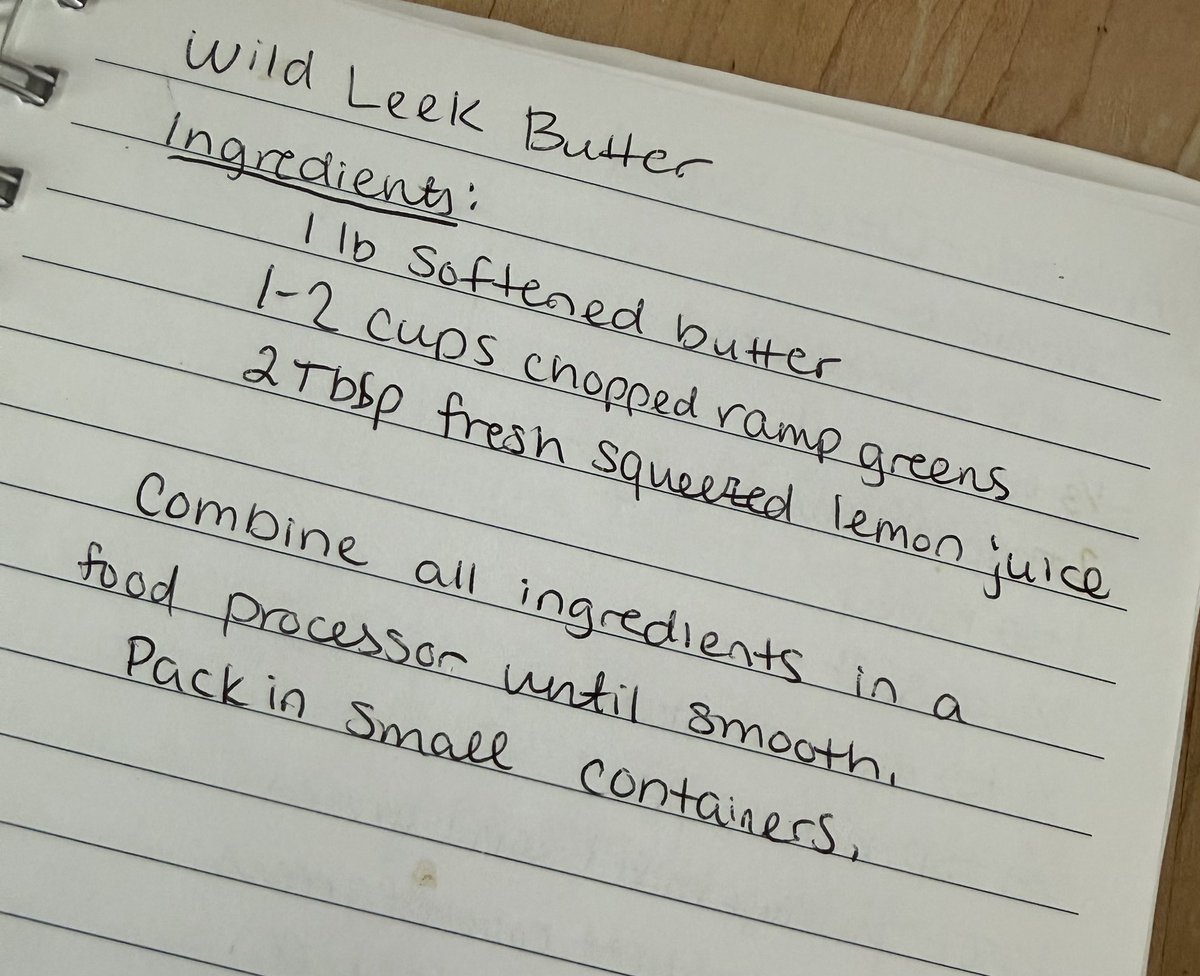 Wild Leek Butter
Ingredients:
1 lb Softened butter
1-2 cups chopped ramp greens
2 Tbsp fresh squeezed lemon juice
Combine all ingredients in a
food processor until smooth.
Pack in small containers.